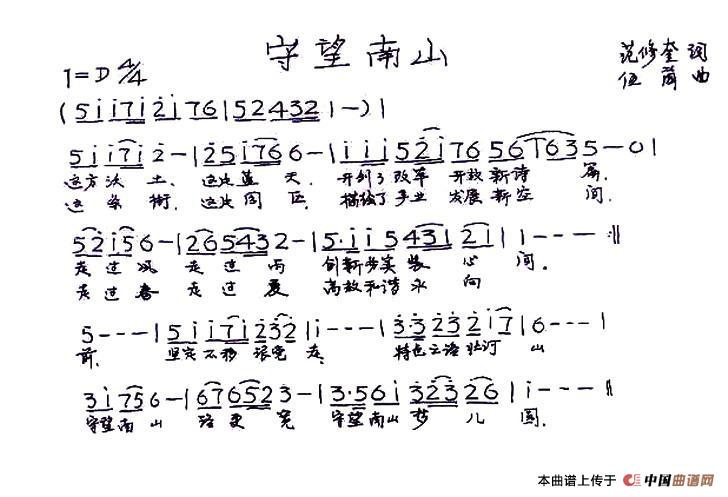 守望南山
1=D 4/4
范修奎 词
伍 曲
(5 i i 7 i 2 i 7 6 | 5 2 4 3 2 | 1 —) |
5 i i 7 i 2 — | 2 5 i 7 6 6 — | i i i 5 2 i 7 6 5 6 i 7 6 3 5 — 0 |
这方沃土、这片蓝天、开创了改革开放新诗篇.
这条街、这片园区、描绘了事业发展新空间.
5 2 i 5 6 — | 2 6 5 4 3 2 — | 5 · i i 5 4 3 1 2 i | 1 — — — :||
走过风 走过雨 创新 装心间.
走过春 走过夏 高放和谐永向
5 — — — | 5 i i 7 i 2 3 2 | i — — — | 3 3 2 3 2 i 7 | 6 — — — |
前. 坚定不移 走. 特色 山
3 i 7 5 6 — | 6 7 6 5 2 3 — | 3 · 5 6 i 3 2 3 2 6 | i — — — ||
守望南山 路更宽 守望南山梦儿圆.
本曲谱上传于 中国曲谱网